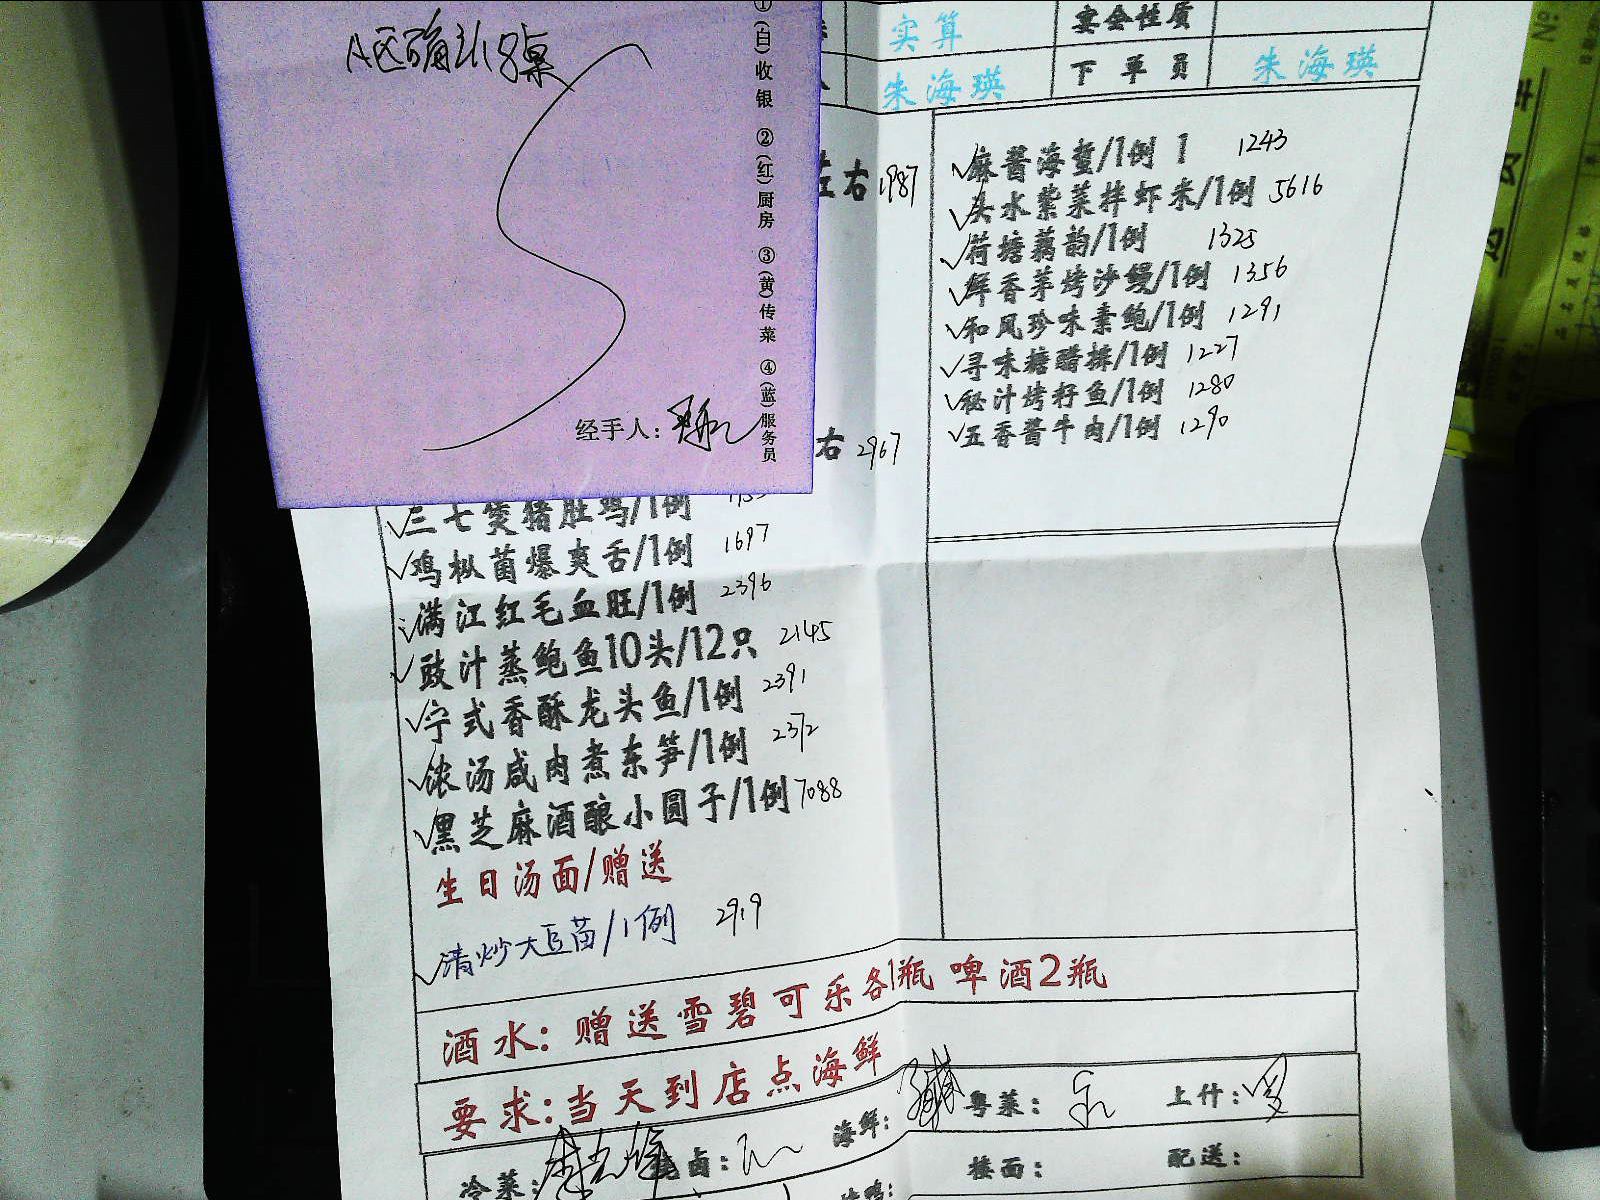 A区确认18桌
①(白)收银 ②(红)厨房 ③(黄)传菜 ④(蓝)服务员
经手人:
实算
宴会性质
朱海瑛
下单员
朱海瑛
左右 1987
右 2967
三七煲猪肚鸡/1例
鸡枞菌爆爽舌/1例 1697
满江红毛血旺/1例 2396
豉汁蒸鲍鱼10头/12只 2145
宁式香酥龙头鱼/1例 2391
浓汤咸肉煮东笋/1例 2372
黑芝麻酒酿小圆子/1例 7088
生日汤面/赠送
清炒大豆苗/1例 2919
麻酱海蜇/1例 1 1243
头水紫菜拌虾米/1例 5616
荷塘藕韵/1例 1325
鲜香茅烤沙鳗/1例 1356
和风珍味素鲍/1例 1291
寻味糖醋排/1例 1227
秘汁烤籽鱼/1例 1280
五香酱牛肉/1例 1290
酒水: 赠送雪碧可乐各1瓶 啤酒2瓶
要求:当天到店点海鲜
冷菜: 卤: 海鲜: 粤菜: 上什:
接面: 配送: